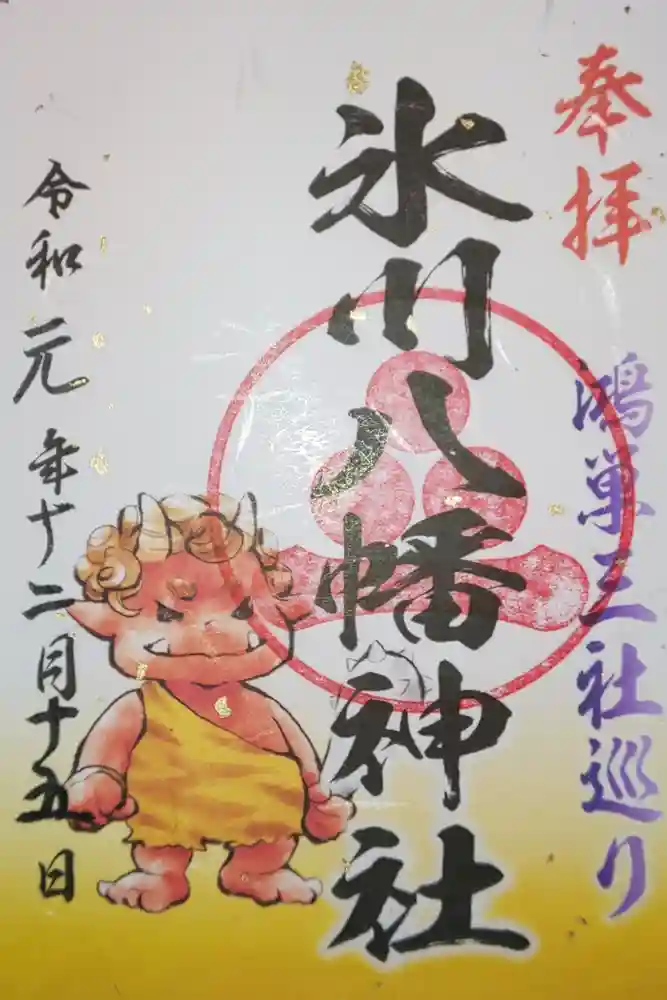 奉拝
鴻巣三社巡り
氷川八幡神社
令和元年十二月十五日